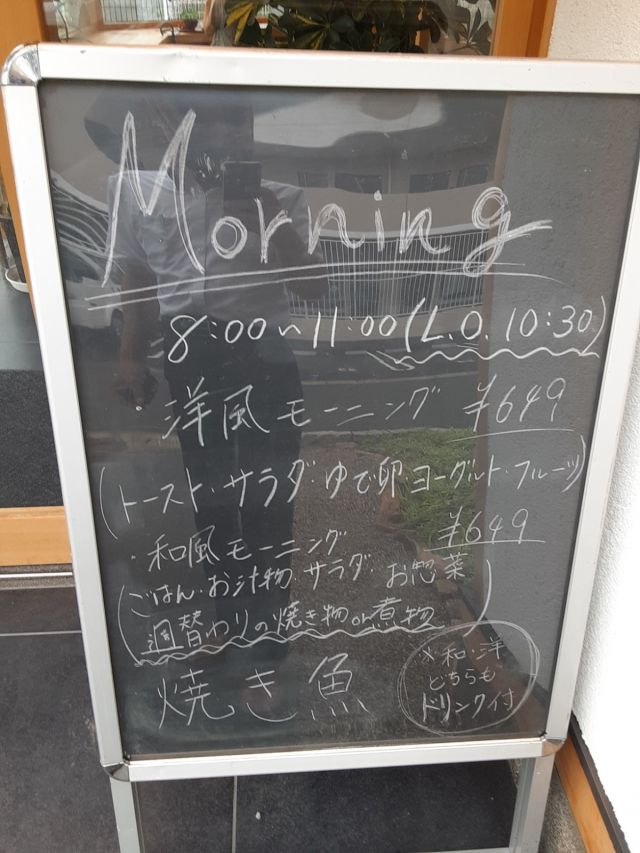 Morning
8:00〜11:00(L.O. 10:30)
・洋風モーニング ¥649
(トースト・サラダ・ゆで卵・ヨーグルト・フルーツ)
・和風モーニング ¥649
(ごはん・お汁物・サラダ・お惣菜
週替わりの焼き物or煮物)
焼き魚
※和・洋
どちらも
ドリンク付